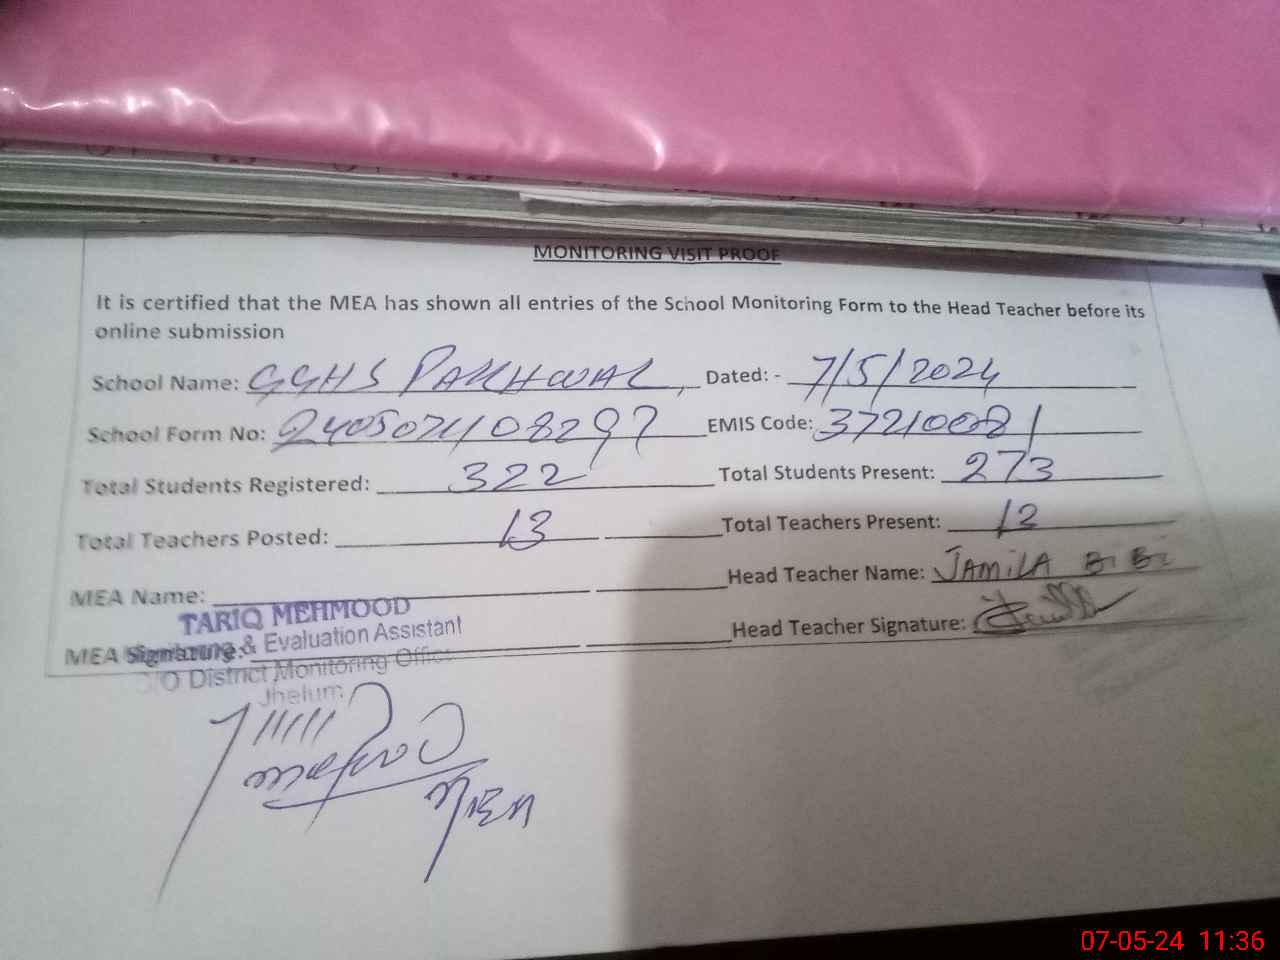 MONITORING VISIT PROOF
It is certified that the MEA has shown all entries of the School Monitoring Form to the Head Teacher before its
online submission
School Name: GGHS PAKHWAL, Dated: - 7/5/2024
School Form No: 240507408297 EMIS Code: 37210081
Total Students Registered: 322 Total Students Present: 273
Total Teachers Posted: 13 Total Teachers Present: 12
MEA Name: Head Teacher Name: JAMILA BiBi
TARIQ MEHMOOD
MEA Signature: Head Teacher Signature:
Monitoring & Evaluation Assistant
O/O District Monitoring Office
Jhelum
MEA
07-05-24 11:36